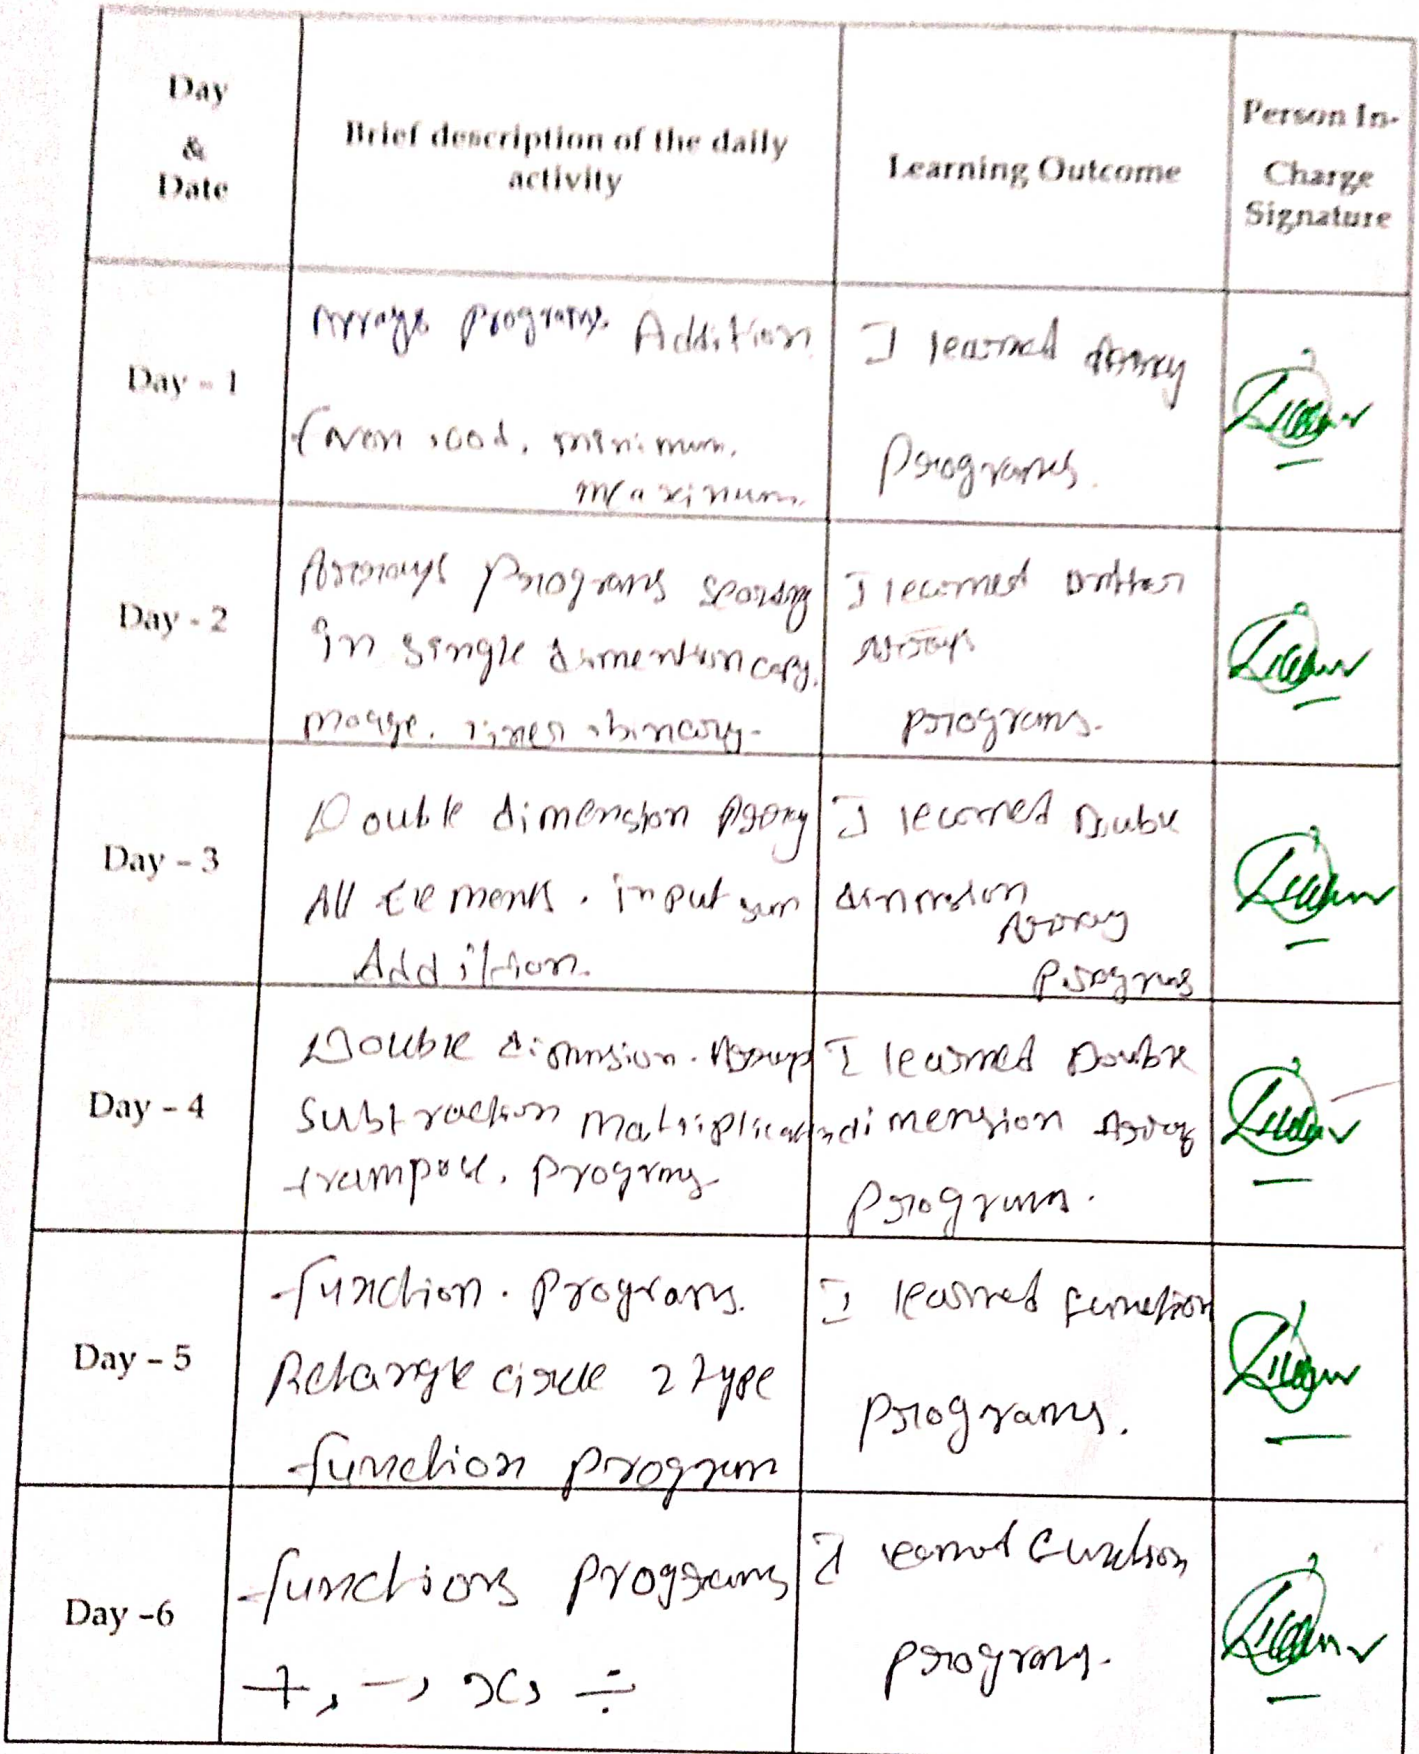 Day
&
Date
Brief description of the daily
activity
Learning Outcome
Person In-
Charge
Signature
Day - 1
Arrays programs Addition
Even, odd, minimum,
maximum.
I learned Array
Programs.
Day - 2
Arrays Programs
in single
binary
I learned
Arrays
programs.
Day - 3
Double dimension Array
All Elements. input sum
Addition.
I learned Double
dimension
Array
Programs
Day - 4
Double dimension. Arrays
Subtraction
transpose. programs
I learned Double
dimension Array
Programs.
Day - 5
function. programs.
circle 2 type
function program
I learned function
programs.
Day -6
functions programs
+, -, x, ÷
I learned function
programs.